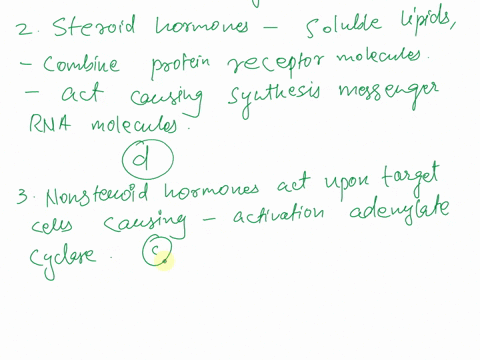 2. Steroid hormones - Soluble lipids,
- Combine protein receptor molecules.
- act causing synthesis messenger
RNA molecules.
d
3. Nonsteroid hormones act upon target
cells causing - activation adenylate
cyclase. c